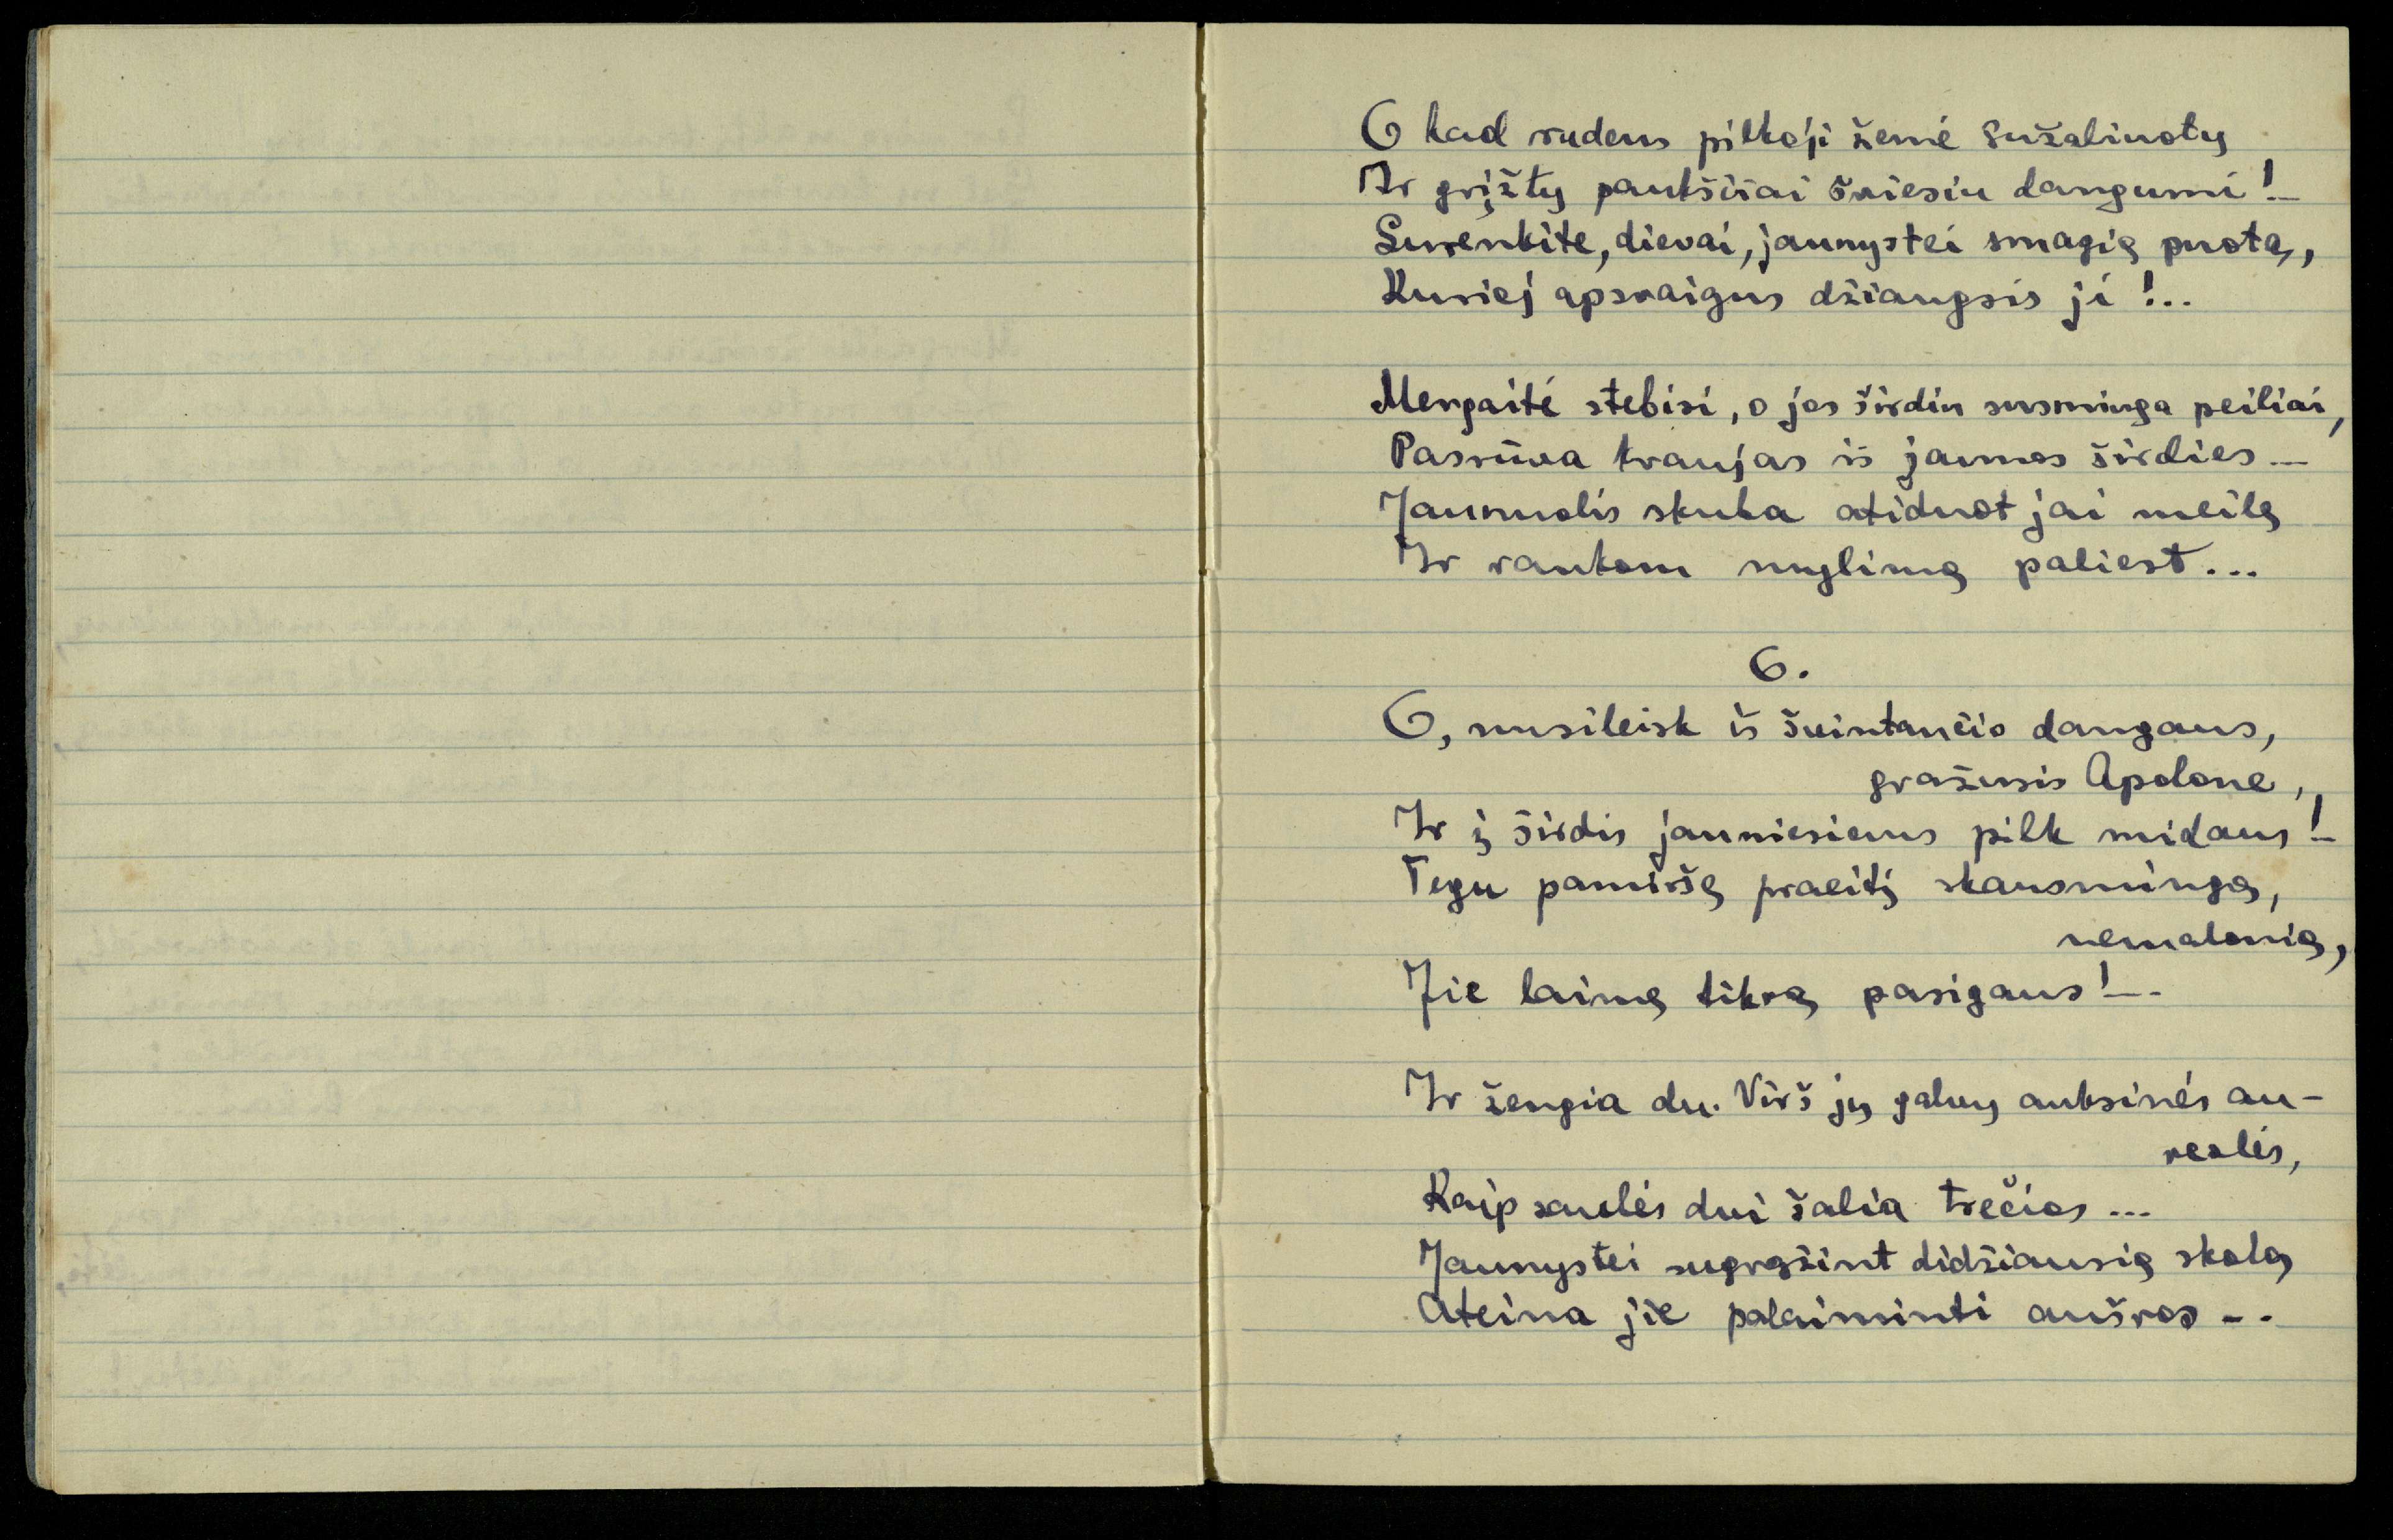 O kad rudens pilkoji žemė sužaliuotų
Ir grįžtų paukščiai šviesiu dangumi!..
Surenkite, dievai, jaunystei smagią puotą,
Kurioj apsvaigus džiaugsis ji!...
Mergaitė stebisi, o jos širdin susminga peiliai,
Pasrūva kraujas iš jaunos širdies...
Jaunuolis skuba atiduot jai meilę
Ir rankom mylimą paliest...
6.
O, nusileisk iš švintančio dangaus,
gražusis Apolone,
Ir į širdis jauniesiems pilk midaus!..
Tegu pamiršę praeitį skausmingą,
nemalonią,
Jie laimę tikrą pasigaus!...
Ir žengia du. Virš jų galvų auksinės au-
reolės,
Kaip saulės dvi šalia trečios...
Jaunystei sugrąžint didžiausią skolą
Ateina jie palaiminti aušros...